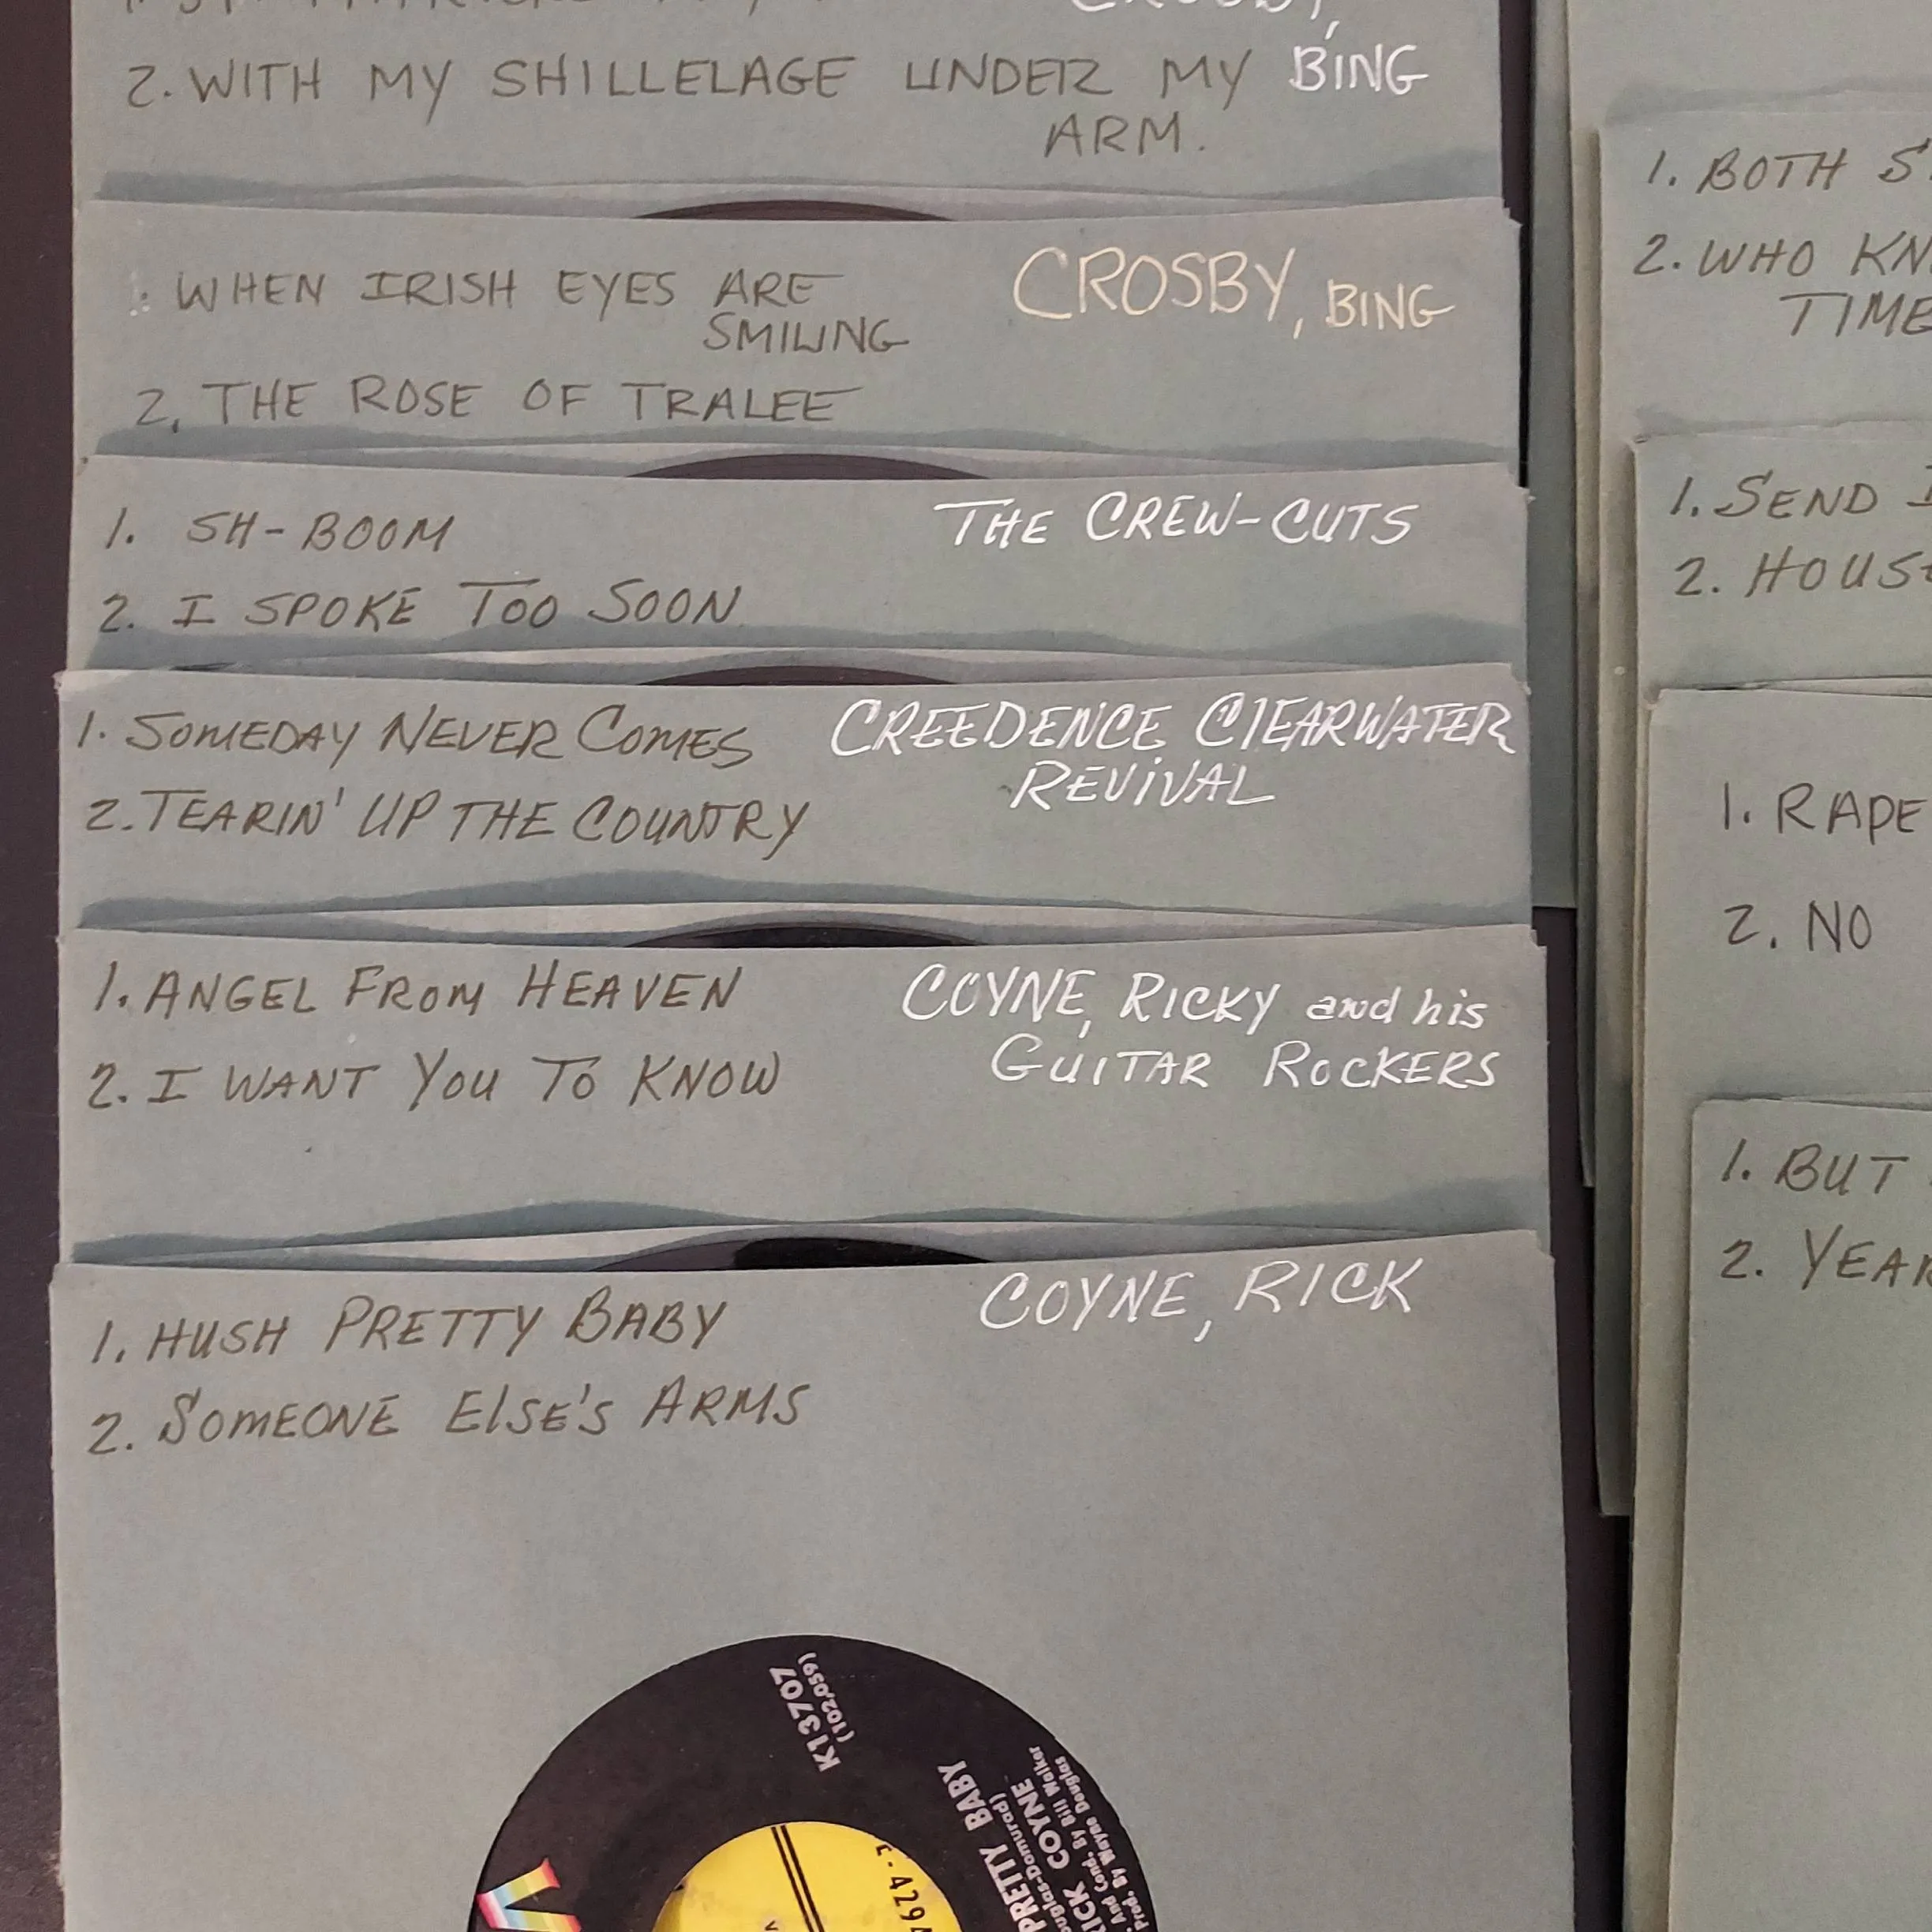 CROSBY,
2. WITH MY SHILLELAGE UNDER MY BING
ARM.
WHEN IRISH EYES ARE
SMILING
CROSBY, BING
2. THE ROSE OF TRALEE
1. SH-BOOM
THE CREW-CUTS
2. I SPOKE TOO SOON
1. SOMEDAY NEVER COMES
CREEDENCE CLEARWATER
REVIVAL
2. TEARIN' UP THE COUNTRY
1. ANGEL FROM HEAVEN
COYNE, RICKY and his
GUITAR ROCKERS
2. I WANT YOU TO KNOW
1. HUSH PRETTY BABY
COYNE, RICK
2. SOMEONE ELSE'S ARMS
K13707
(102,059)
PRETTY BABY
RICK COYNE
And Cond. By Bill Walker
Prod. By Wayne Douglas
1. BOTH
2. WHO
TIME
1. SEND
2.
1. RAPE
2. NO
1. BUT
2.